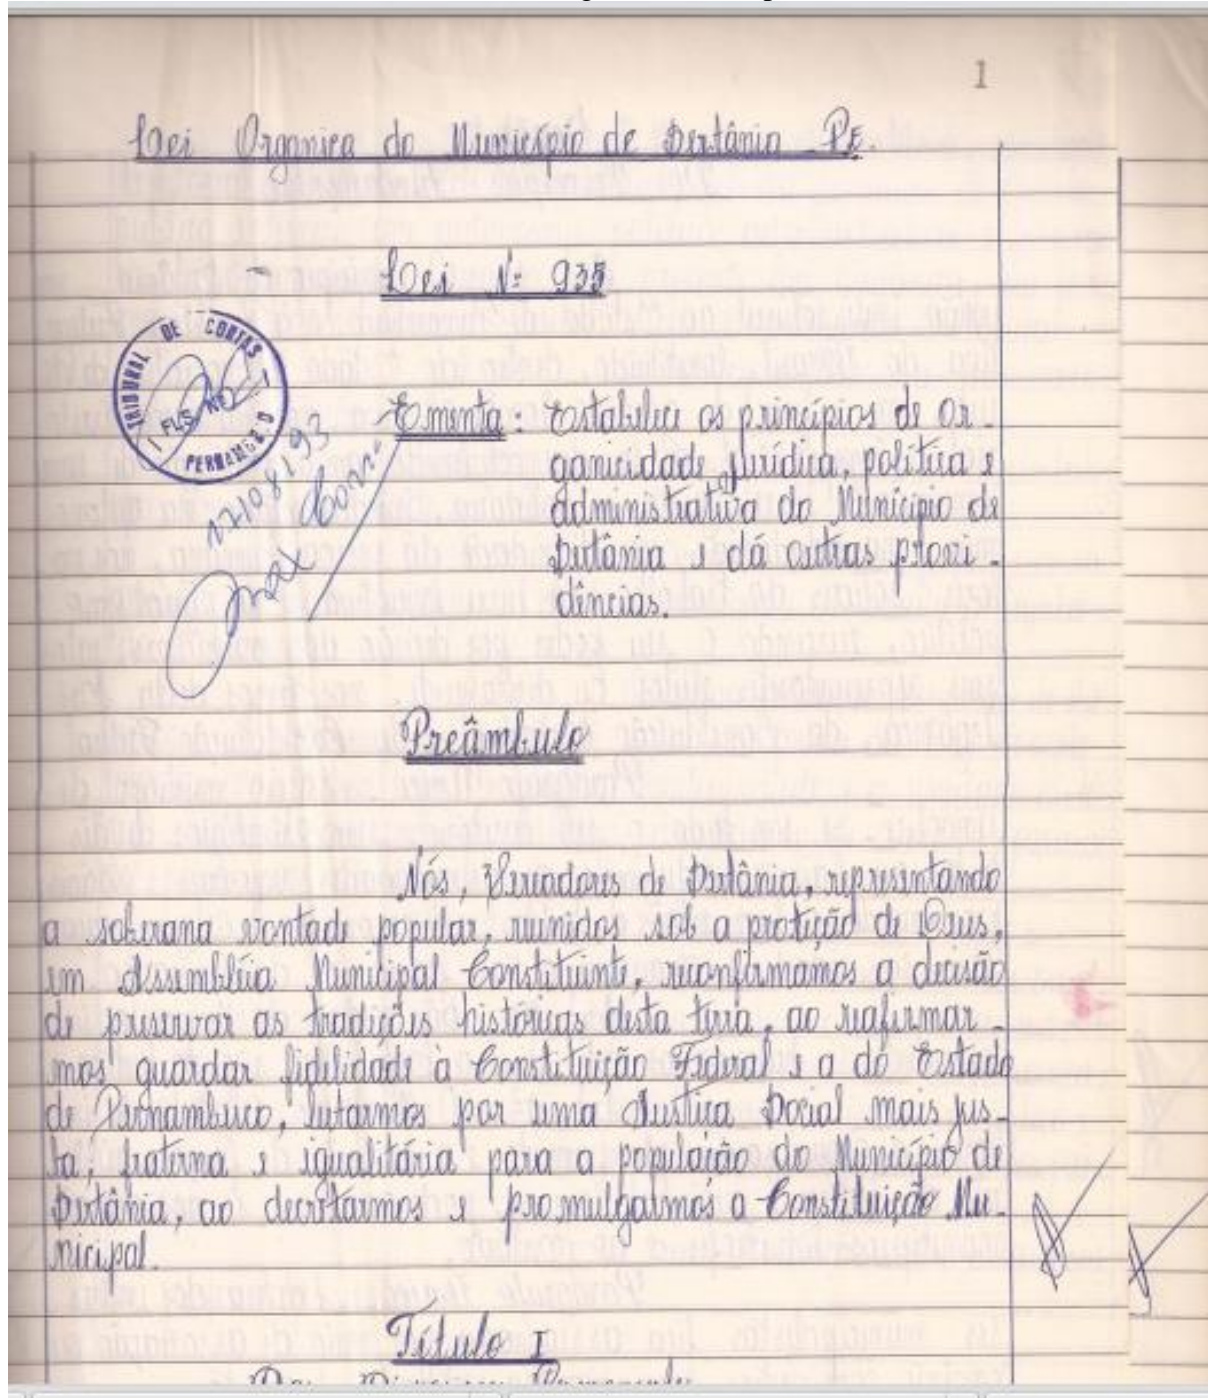 1
Lei Organica do Município de Sertânia PE.
Lei Nº 935
TRIBUNAL DE CONTAS
FLS Nº
PERNAMB
17/08/93
Ementa: Estabelece os princípios de or-
ganicidade jurídica, política e
administrativa do Município de
Sertânia e dá outras provi-
dências.
Preâmbulo
Nós, Vereadores de Sertânia, representando
a soberana vontade popular, reunidos sob a proteção de Deus,
em Assembléia Municipal Constituinte, reconfirmamos a decisão
de preservar as tradições históricas desta terra, ao reafirmar-
mos guardar fidelidade à Constituição Federal e a do Estado
de Pernambuco, lutarmos por uma Justiça Social mais jus-
ta, fraterna e igualitária para a população do Município de
Sertânia, ao decretarmos e promulgarmos a Constituição Mu-
nicipal.
Título I